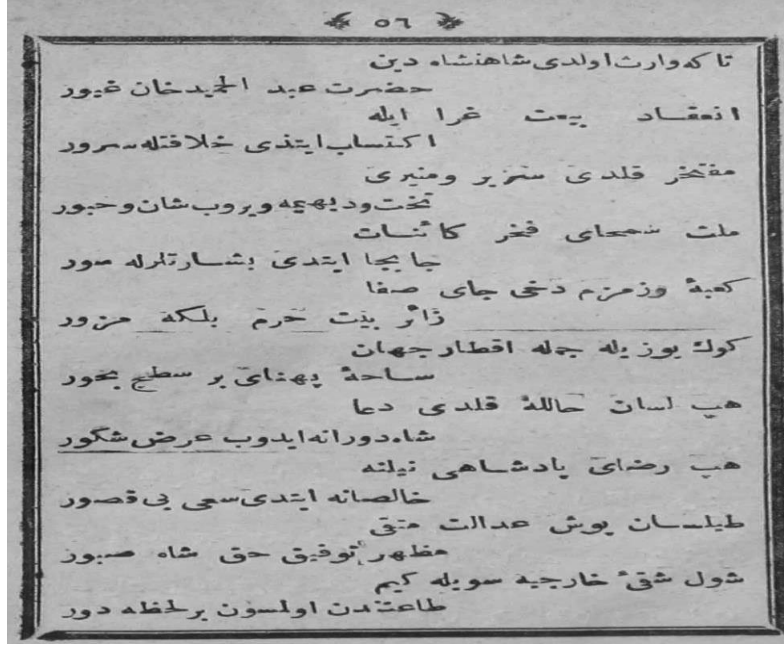 ٥٦
تا كه وارث اولدى شاهنشاه دين
حضرت عبد الحميد خان غيور
انعقاد بيعت غرا ايله
اكتساب ايتدى خلافتله سرور
مفتخر قلدى سرير و منبرى
تخت و ديهيمه ويروب شان و حبور
ملت سمحاى فخر كائنات
جا بجا ايتدى بشارتلرله سور
كعبۀ وزمزم دخى جاى صفا
زائر بيت حرم بلكه مزور
كوك يوزيله جمله اقطار جهان
ساحۀ پهناى بر سطح بحور
هپ لسان حاللۀ قلدى دعا
شاه دورانه ايدوب عرض شكور
هپ رضاى پادشاهى نيلنه
خالصانه ايتدى سعى بى قصور
طيلسان پوش عدالت متقى
مظهر توفيق حق شاه صبور
شول شقئ خارجيه سويله كيم
طاعتندن اولمسون بر لحظه دور